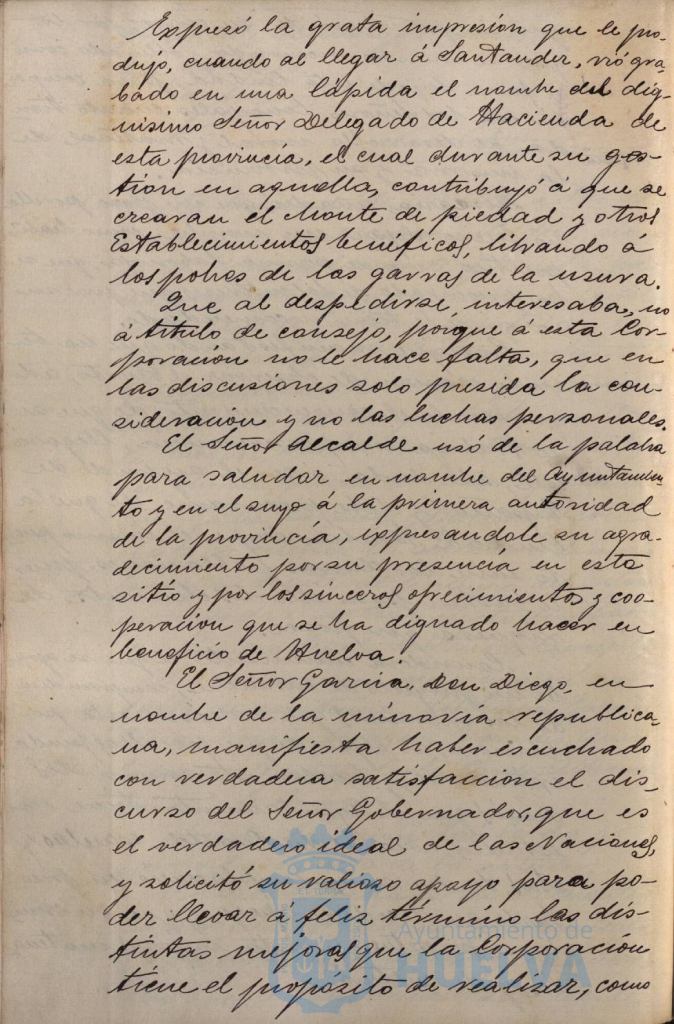 Expresó la grata impresion que le pro-
dujo, cuando al llegar á Santander, vió gra-
bado en una lápida el nombre del dig-
nisimo Señor Delegado de Hacienda de
esta provincia, el cual durante su ges-
tion en aquella, contribuyó á que se
crearan el Monte de piedad y otros
Establecimientos benéficos, librando á
los pobres de las garras de la usura.
Que al despedirse, interesaba, no
á titulo de consejo, porque á esta Cor-
poracion no le hace falta, que en
las discusiones solo presida la con-
sideración y no las luchas personales.
El Señor Alcalde usó de la palabra
para saludar en nombre del Ayuntamien-
to y en el suyo á la primera autoridad
de la provincia, expresandole su agra-
decimiento por su presencia en este
sitio y por los sinceros ofrecimientos y coo-
peración que se ha dignado hacer en
beneficio de Huelva.
El Señor Garcia, Don Diego, en
nombre de la minoria republica-
na, manifiesta haber escuchado
con verdadera satisfaccion el dis-
curso del Señor Gobernador, que es
el verdadero ideal de las Naciones,
y solicitó su valioso apoyo para po-
der llevar á feliz término las dis-
tintas mejoras que la Corporación
tiene el propósito de realizar, como
Ayuntamiento de
HUELVA